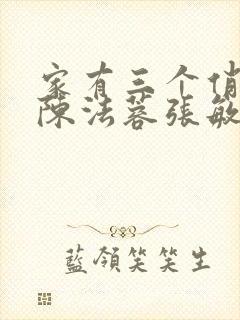 家有三个俏
陈法蓉张敏
藍領笑笑生